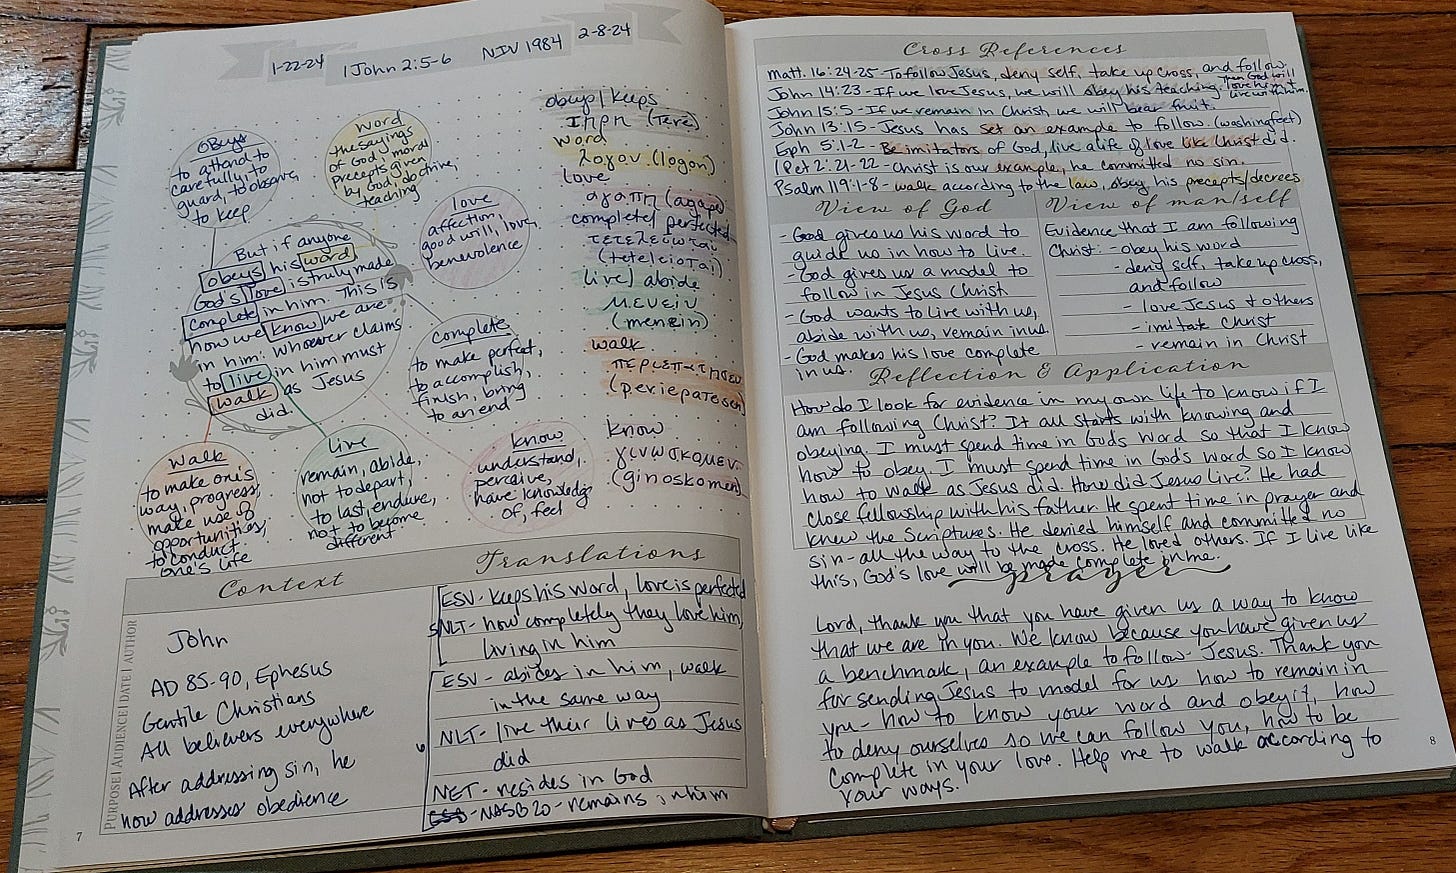 1-22-24
1 John 2:5-6
NIV 1984
2-8-24
Obeys
to attend to
carefully, to
guard, to observe,
to keep
word
the sayings
of God; moral
precepts given
by God, doctrine,
teaching
love
affection,
good will, love,
benevolence
But if anyone
obeys his word
God's love is truly made
complete in him. This is
how we know we are
in him: Whoever claims
to live in him must
walk as Jesus
did.
complete
to make perfect,
to accomplish,
finish, bring
to an end
walk
to make one's
way, progress,
make use of
opportunities,
to conduct
one's life
live
remain, abide,
not to depart,
to last, endure,
not to become
different
know
understand,
perceive,
have knowledge
of, feel
obeys/keeps
τηρη (tere)
word
λογον (logon)
love
αγαπη (agape)
complete/perfected
τετελειωται
(teteleiotai)
live/abide
μενειν
(menein)
walk
περιεπατησεν
(periepatesen)
know
γινωσκομεν
(ginoskomen)
Context
PURPOSE | AUDIENCE | DATE | AUTHOR
John
AD 85-90, Ephesus
Gentile Christians
All believers everywhere
After addressing sin, he
now addresses obedience
Translations
5
ESV- keeps his word, love is perfected
NLT- how completely they love him,
living in him
6
ESV - abides in him, walk
in the same way
NLT- live their lives as Jesus
did
NET- resides in God
NASB20- remains in him
7
Cross References
Matt. 16:24-25 - To follow Jesus, deny self, take up cross, and follow
John 14:23 - If we love Jesus, we will obey his teaching. Then God will love him, live with him.
John 15:5 - If we remain in Christ, we will bear fruit.
John 13:15 - Jesus has set an example to follow. (washing feet)
Eph 5:1-2 - Be imitators of God, live a life of love like Christ did.
1 Pet 2:21-22 - Christ is our example, he committed no sin.
Psalm 119:1-8 - walk according to the law, obey his precepts/decrees
View of God
- God gives us his word to
guide us in how to live.
- God gives us a model to
follow in Jesus Christ
- God wants to live with us,
abide with us, remain in us.
- God makes his love complete
in us.
View of man/self
Evidence that I am following
Christ: - obey his word
- deny self, take up cross,
and follow
- love Jesus + others
- imitate Christ
- remain in Christ
Reflection & Application
How do I look for evidence in my own life to know if I
am following Christ? It all starts with knowing and
obeying. I must spend time in God's Word so that I know
how to obey. I must spend time in God's Word so I know
how to walk as Jesus did. How did Jesus live? He had
close fellowship with his father. He spent time in prayer and
knew the Scriptures. He denied himself and committed no
sin - all the way to the cross. He loved others. If I live like
this, God's love will be made complete in me.
Prayer
Lord, thank you that you have given us a way to know
that we are in you. We know because you have given us
a benchmark, an example to follow - Jesus. Thank you
for sending Jesus to model for us how to remain in
you - how to know your word and obey it, how
to deny ourselves so we can follow you, how to be
complete in your love. Help me to walk according to
your ways.
8